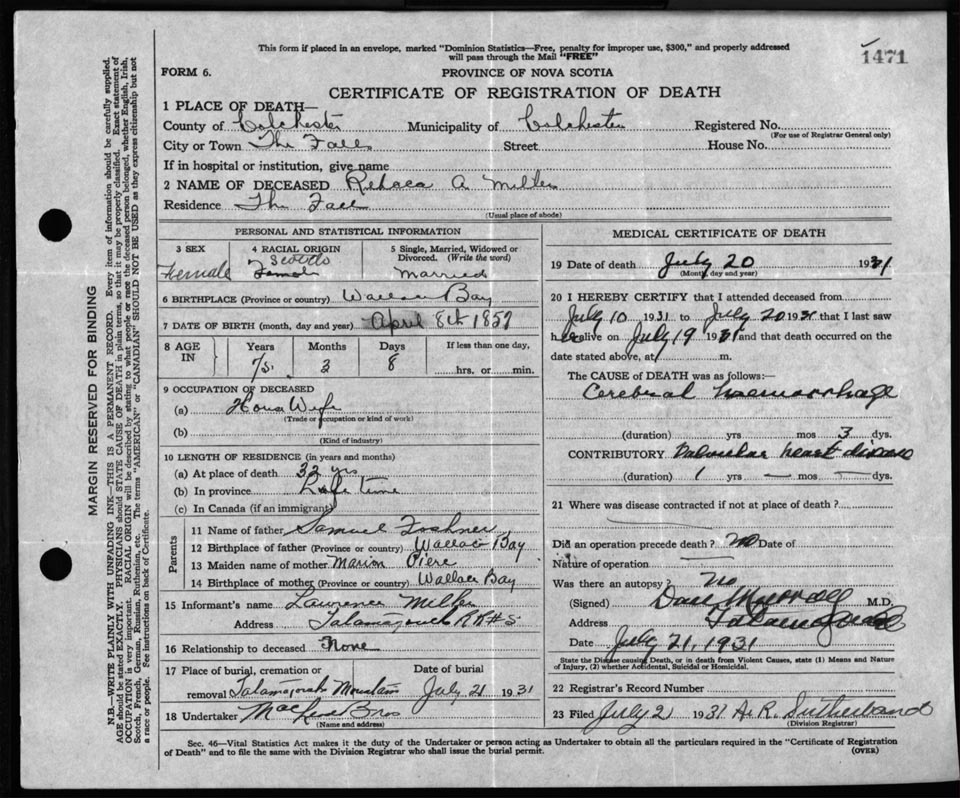 This form if placed in an envelope, marked "Dominion Statistics—Free, penalty for improper use, $300," and properly addressed
will pass through the Mail "FREE"
1471
FORM 6.
PROVINCE OF NOVA SCOTIA
CERTIFICATE OF REGISTRATION OF DEATH
1 PLACE OF DEATH—
County of Colchester Municipality of Colchester Registered No.
(For use of Registrar General only)
City or Town The Falls Street House No.
If in hospital or institution, give name
2 NAME OF DECEASED A. Miller
Residence The Falls
(Usual place of abode)
PERSONAL AND STATISTICAL INFORMATION
3 SEX 4 RACIAL ORIGIN 5 Single, Married, Widowed or
Divorced. (Write the word)
Scotts
Female Female Married
6 BIRTHPLACE (Province or country) Wallace Bay
7 DATE OF BIRTH (month, day and year) April 8th 1857
8 AGE IN Years Months Days If less than one day,
3 8 hrs. or min.
9 OCCUPATION OF DECEASED
(a) House Wife
(Trade or occupation or kind of work)
(b)
(Kind of industry)
10 LENGTH OF RESIDENCE (in years and months)
(a) At place of death 32 yrs
(b) In province Life time
(c) In Canada (if an immigrant)
Parents
11 Name of father Samuel
12 Birthplace of father (Province or country) Wallace Bay
13 Maiden name of mother Marion
14 Birthplace of mother (Province or country) Wallace Bay
15 Informant's name Lawrence Miller
Address Tatamagouche RR#5
16 Relationship to deceased None
17 Place of burial, cremation or Date of burial
removal Tatamagouche Mountain July 21 1931
18 Undertaker Bros
(Name and address)
MEDICAL CERTIFICATE OF DEATH
19 Date of death July 20 1931
(Month, day and year)
20 I HEREBY CERTIFY that I attended deceased from
July 10 1931 to July 20 1931 that I last saw
her alive on July 19 1931 and that death occurred on the
date stated above, at m.
The CAUSE of DEATH was as follows:—
Cerebral haemorrhage
(duration) yrs mos 3 dys.
CONTRIBUTORY Valvular heart disease
(duration) 1 yrs — mos — dys.
21 Where was disease contracted if not at place of death?
Did an operation precede death? no Date of
Nature of operation
Was there an autopsy? No
(Signed) Dan Murray M.D.
Address Tatamagouche
Date July 21, 1931
State the Disease causing Death, or in death from Violent Causes, state (1) Means and Nature
of Injury, (2) whether Accidental, Suicidal or Homicidal.
22 Registrar's Record Number
23 Filed July 2 1931 A. R. Sutherland
(Division Registrar)
Sec. 46—Vital Statistics Act makes it the duty of the Undertaker or person acting as Undertaker to obtain all the particulars required in the "Certificate of Registration
of Death" and to file the same with the Division Registrar who shall issue the burial permit.
(OVER)
MARGIN RESERVED FOR BINDING
N.B.—WRITE PLAINLY WITH UNFADING INK—THIS IS A PERMANENT RECORD. Every item of information should be carefully supplied.
AGE should be stated EXACTLY. PHYSICIANS should STATE CAUSE OF DEATH in plain terms, so that it may be properly classified. Exact statement of
OCCUPATION is very important. RACIAL ORIGIN will be described by stating to what people or race the deceased person belonged, whether English, Irish,
Scotch, French, German, Russian, Ruthenian, etc. The terms "AMERICAN" or "CANADIAN" SHOULD NOT BE USED as they express citizenship but not
a race or people. See instructions on back of Certificate.